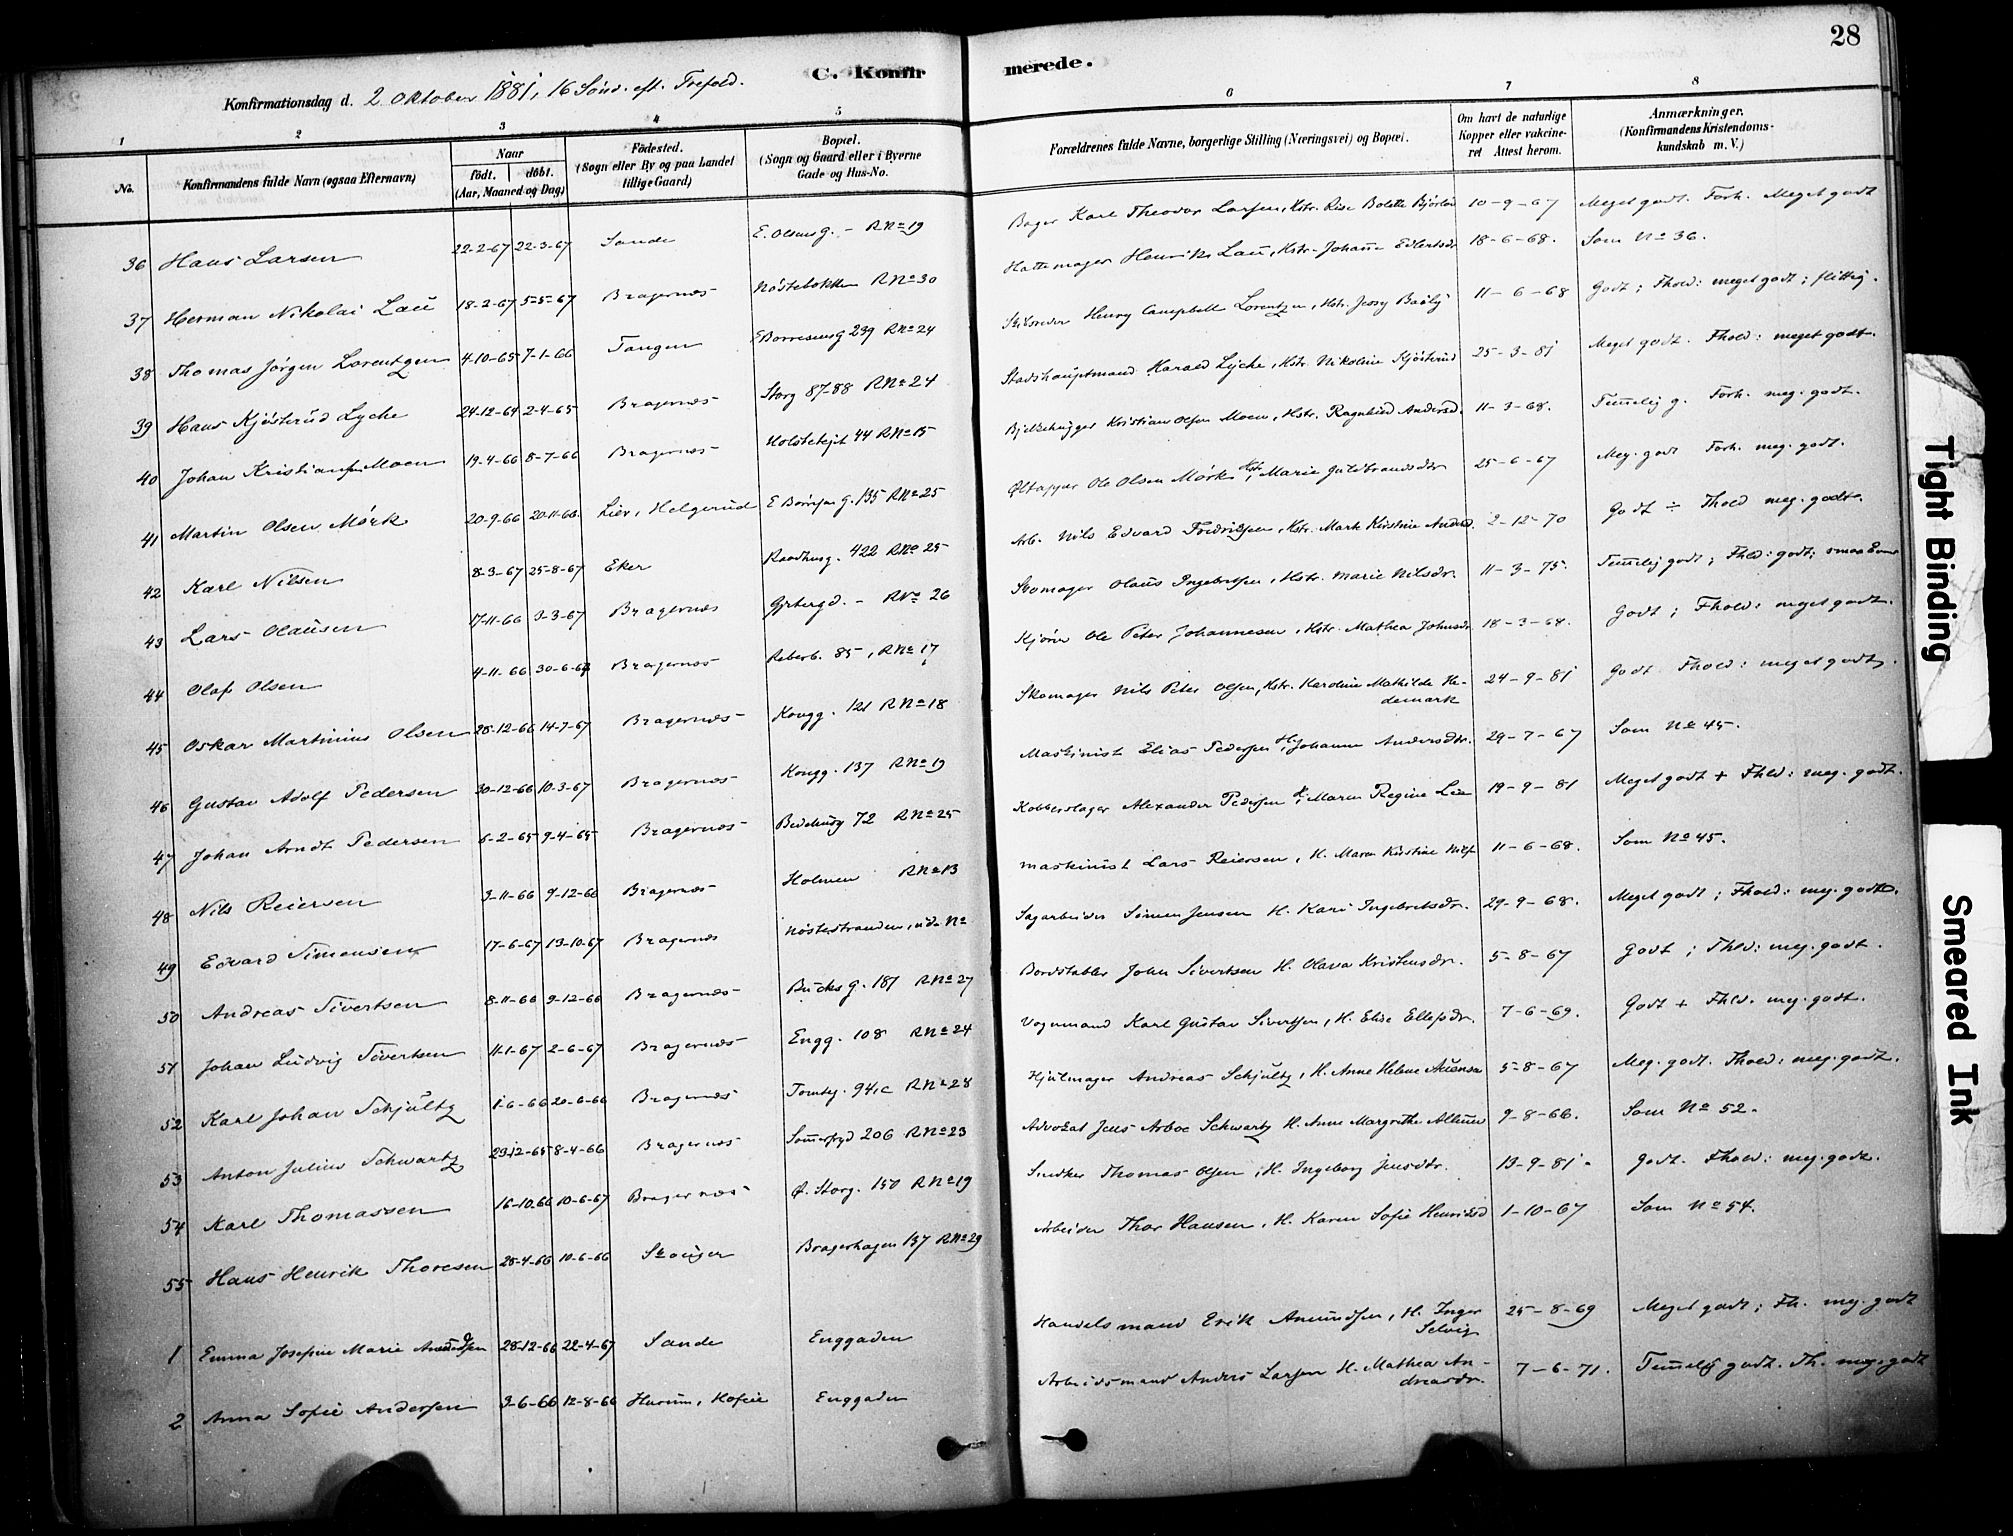 28
C. Konfirmerede.
Konfirmationsdag d. 2 Oktober 1881, 16 Sønd. eft. Trefold.
1 2 3 4 5 6 7 8
No. Konfirmandens fulde Navn (ogsaa Efternavn) Naar født. døbt. (Aar, Maaned og Dag) Fødested. (Sogn eller By og paa Landet tillige Gaard) Bopæl. (Sogn og Gaard eller i Byerne Gade og Hus-No. Forældrenes fulde Navne, borgerlige Stilling (Næringsvei) og Bopæl. Om havt de naturlige Kopper eller vakcineret Attest herom. Anmærkninger. (Konfirmandens Kristendomskundskab m. V.)
36 Hans Larsen 22-2-67 22-3-67 Sande E. Olsens g. - R No 19 Bager Karl Theodor Larsen, Hstr. Rise Bolette 10-9-67 Meget godt. Forh. Meget godt
37 Herman Nikolai Lau 18-2-67 5-5-67 Bragernes Nøstebakken R No 30 Hattemager Henrik Lau, Hstr. Johanne 18-6-68. Som No 36.
38 Thomas Jørgen Lorentzen 4-10-65 7-1-66 Tangen 239 R No 24 Skibsreder Henry Campbell Lorentzen, Hstr. 11-6-68 Godt; Fhold: meget godt; flittig.
39 Hans Kjøsterud Lyche 24-12-64 2-4-65 Bragernes Storg 87-88 R No 24 Stadshauptmand Harald Lyche, Hstr. Nikoline Kjøsterud 25-3-81 Meget godt. Fhold: meget godt.
40 Johan Kristiansen Moen 19-4-66 8-7-66 Bragernes 44 R No 15 Bjelkehugger Kristian Olsen Moen, Hstr. Ragnhild Andersd. 11-3-68. Temmelig g. Forh. meg. godt.
41 Martin Olsen Mørk 20-9-66 20-11-66. Lier, Helgerud 135 R No 25 Øltapper Ole Olsen Mørk Hstr. Marie Guldbrandsdtr 25-6-67 Meg. godt Forh. meg. godt.
42 Karl Nilsen 8-3-67 25-8-67 Eker Raadhusg. 422 R No 25 Arb. Nils Edvard Fredriksen, Hstr. 2-12-70 Godt ÷ Fhold meg. godt.
43 Lars Olausen 17-11-66 3-3-67 Bragernes - R No 26 Skomager Olaus Ingebretsen, Hstr. Marie Nilsdr. 11-3-75. Temmelig godt; Fhld: godt;
44 Olaf Olsen 4-11-66 30-6-67 Bragernes Reberb. 85, R No 17 Kjører Ole Peter Johannesen, Hstr. Mathea Johnsdr 18-3-68. Godt; Fhold: meget godt.
45 Oskar Martinius Olsen 28-12-66 14-7-67 Bragernes Kongg. 121 R No 18 Skomager Nils Peter Olsen, Hstr. Karoline Mathilde Hedemark 24-9-81 Godt Fhold: meget godt.
46 Gustav Adolf Pedersen 30-12-66 10-3-67 Bragernes Kongg. 137 R No 19 Maskinist Elias Pedersen H. Johanne Andersdtr. 29-7-67 Som No 45.
47 Johan Arndt Pedersen 6-2-65 9-4-65 Bragernes 72 R No 25 Kobberslager Alexander Pedersen H. Maren Regine Lie 19-9-81 Meget godt + Fhld: meg. godt.
48 Nils Reiersen 3-11-66 9-12-66 Bragernes Holmen R No 13 Maskinist Lars Reiersen, H. Maren Kristine 11-6-68. Som No 45.
49 Edvard Simensen 17-6-67 13-10-67 Bragernes Nøstestranden, uden No Sagarbeider Simen Jensen H. Kari Ingebretsdr. 29-9-68. Meget godt; Fhold: meg. godt.
50 Andreas Sivertsen 8-11-66 9-12-66 Bragernes Bucks g. 187 R No 27 Bordstabler John Sivertsen H. Olava Kristensdr. 5-8-67 Godt; Fhld: meg. godt.
51 Johan Ludvig Sivertsen 11-1-67 2-6-67 Bragernes Engg. 108 R No 24 Vognmand Karl Gustav Sivertsen, H. Elise Ellefsdr. 7-6-69. Godt + Fhld. meg. godt.
52 Karl Johan Schjultz 1-6-66 20-6-66 Bragernes Tomteg. 94,c R No 28 Hjulmager Andreas Schjultz, H. Anne Helene 5-8-67 Meg. godt. Fhold: meg. godt.
53 Anton Julius Schwartz 23-12-65 8-4-66 Bragernes 206 R No 23 Advokat Jens Arboe Schwartz H. Anne Margrethe 9-8-66. Som No 52.
54 Karl Thomassen 16-10-66 10-6-67 Bragernes Ø. Storg. 150 R No 19 Snedker Thomas Olsen, H. Ingeborg Jensdtr. 13-9-81. Godt. Fhold: meg. godt.
55 Hans Henrik Thoresen 28-4-66 10-6-66 Skouger Bragerhagen 137 R No 29 Arbeider Thor Hansen, H. Karen Sofie Henriksd 1-10-67 Som No 54.
1 Emma Josefine Marie Amundsen 28-12-66 22-4-67 Sande Enggaden Handelsmand Erik Amundsen, H. Inger Selvig 25-8-69 Meget godt; Fh. meg. godt
2 Anna Sofie Andersen 3-6-66 12-8-66 Hurum, Enggaden Arbeidsmand Anders Larsen H. Mathea Andreasdr. 7-6-71. Temmelig godt. Fh. meg. godt
Tight Binding
Smeared Ink